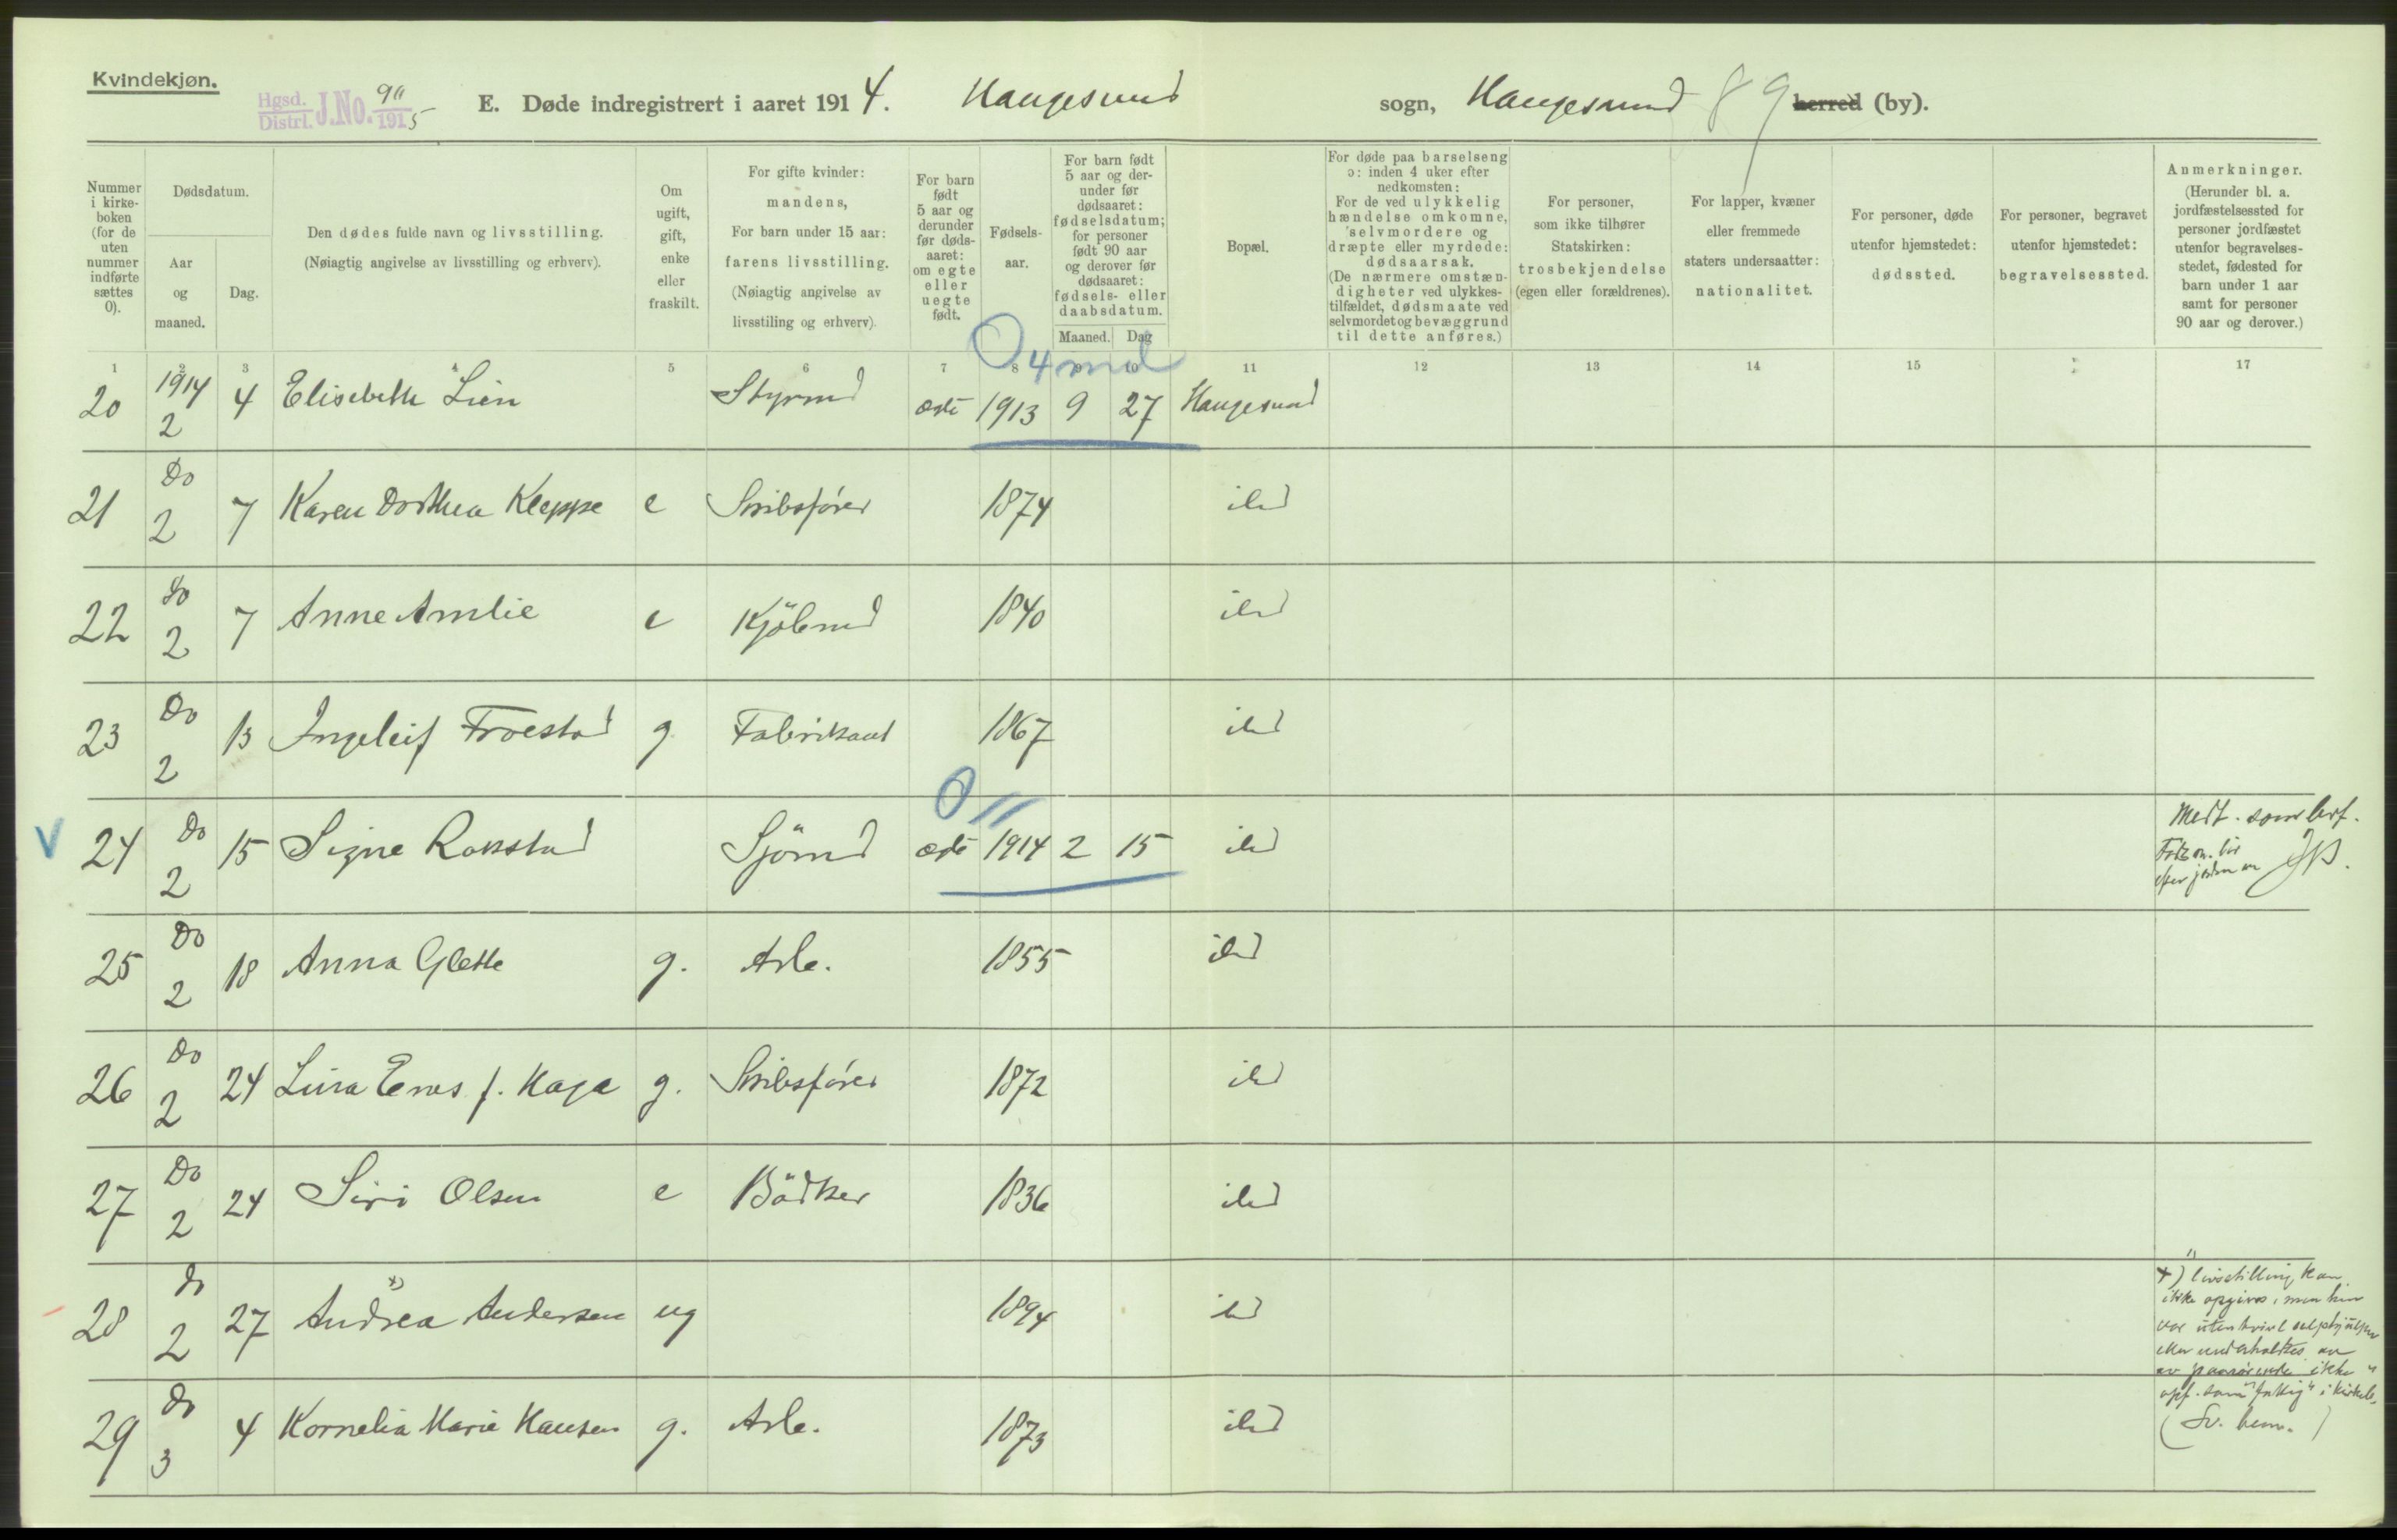 Kvindekjøn.
Hgsd. Distrl. J.No. 90/1915
E. Døde indregistrert i aaret 1914. Haugesund sogn, Haugesund 89 herred (by).
Nummer i kirkeboken (for de uten nummer indførte sættes 0).
Dødsdatum.
Aar og maaned.
Dag.
Den dødes fulde navn og livsstilling.
(Nøiagtig angivelse av livsstilling og erhverv).
Om ugift, gift, enke eller fraskilt.
For gifte kvinder: mandens, For barn under 15 aar: farens livsstilling. (Nøiagtig angivelse av livsstiling og erhverv).
For barn født 5 aar og derunder før dødsaaret: om egte eller uegte født.
Fødselsaar.
For barn født 5 aar og derunder før dødsaaret: fødselsdatum; for personer født 90 aar og derover før dødsaaret: fødsels- eller daabsdatum.
Maaned. Dag
Bopæl.
For døde paa barselseng ɔ: inden 4 uker efter nedkomsten: For de ved ulykkelig hændelse omkomne, selvmordere og dræpte eller myrdede: dødsaarsak. (De nærmere omstændigheter ved ulykkestilfældet, dødsmaate ved selvmordet og bevæggrund til dette anføres.)
For personer, som ikke tilhører Statskirken: trosbekjendelse (egen eller forældrenes).
For lapper, kvæner eller fremmede staters undersaatter: nationalitet.
For personer, døde utenfor hjemstedet: dødssted.
For personer, begravet utenfor hjemstedet: begravelsessted.
Anmerkninger. (Herunder bl. a. jordfæstelsessted for personer jordfæstet utenfor begravelsesstedet, fødested for barn under 1 aar samt for personer 90 aar og derover.)
1 2 3 5 6 7 8 9 10 11 12 13 14 15 17
0 4 md
20 1914 2 4 Elisebeth Lien Styrmd ægte 1913 9 27 Haugesund
21 Do 2 7 Karen Dorthea Kleppe e Skibsfører 1874 ibd
22 do 2 7 Anne Amlie e Kjöbmd 1840 ibd
23 Do 2 13 Ingeleif Froestad g Fabrikant 1867 ibd
0 11
V 24 Do 2 15 Signe Rokstad Sjömd ægte 1914 2 15 ibd
25 Do 2 18 Anna Glette g. Arb. 1855 ibd
26 Do 2 24 Lina Enes f. Haga g. Skibsfører 1872 ibd
27 Do 2 24 Siri Olsen e Bödker 1836 ibd
28 Do 2 27 Andrea x) Andersen ug 1894 ibd
x) livsstilling kan
ikke opgives, men hun
var uten tvivl selvhjulpen
eller underholdtes av
av paarørende ikke
opf. som "fattig" i kirkeb.
29 Do 3 4 Kornelia Marie Hansen g. Arb. 1873 ibd